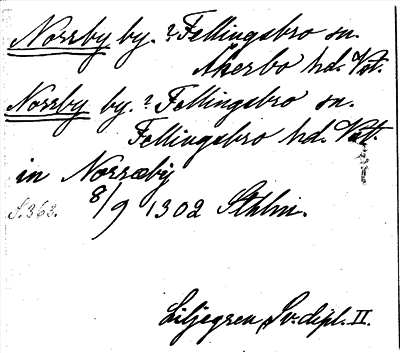 Norrby by. ? Fellingsbro sn.
Åkerbo hd. Vst.
Norrby by. ? Fellingsbro sn.
Fellingsbro hd. Väst.
in Norræby
S. 363. 8/9 1302 Sthlm.
Liljegren, Sv. dipl. II.